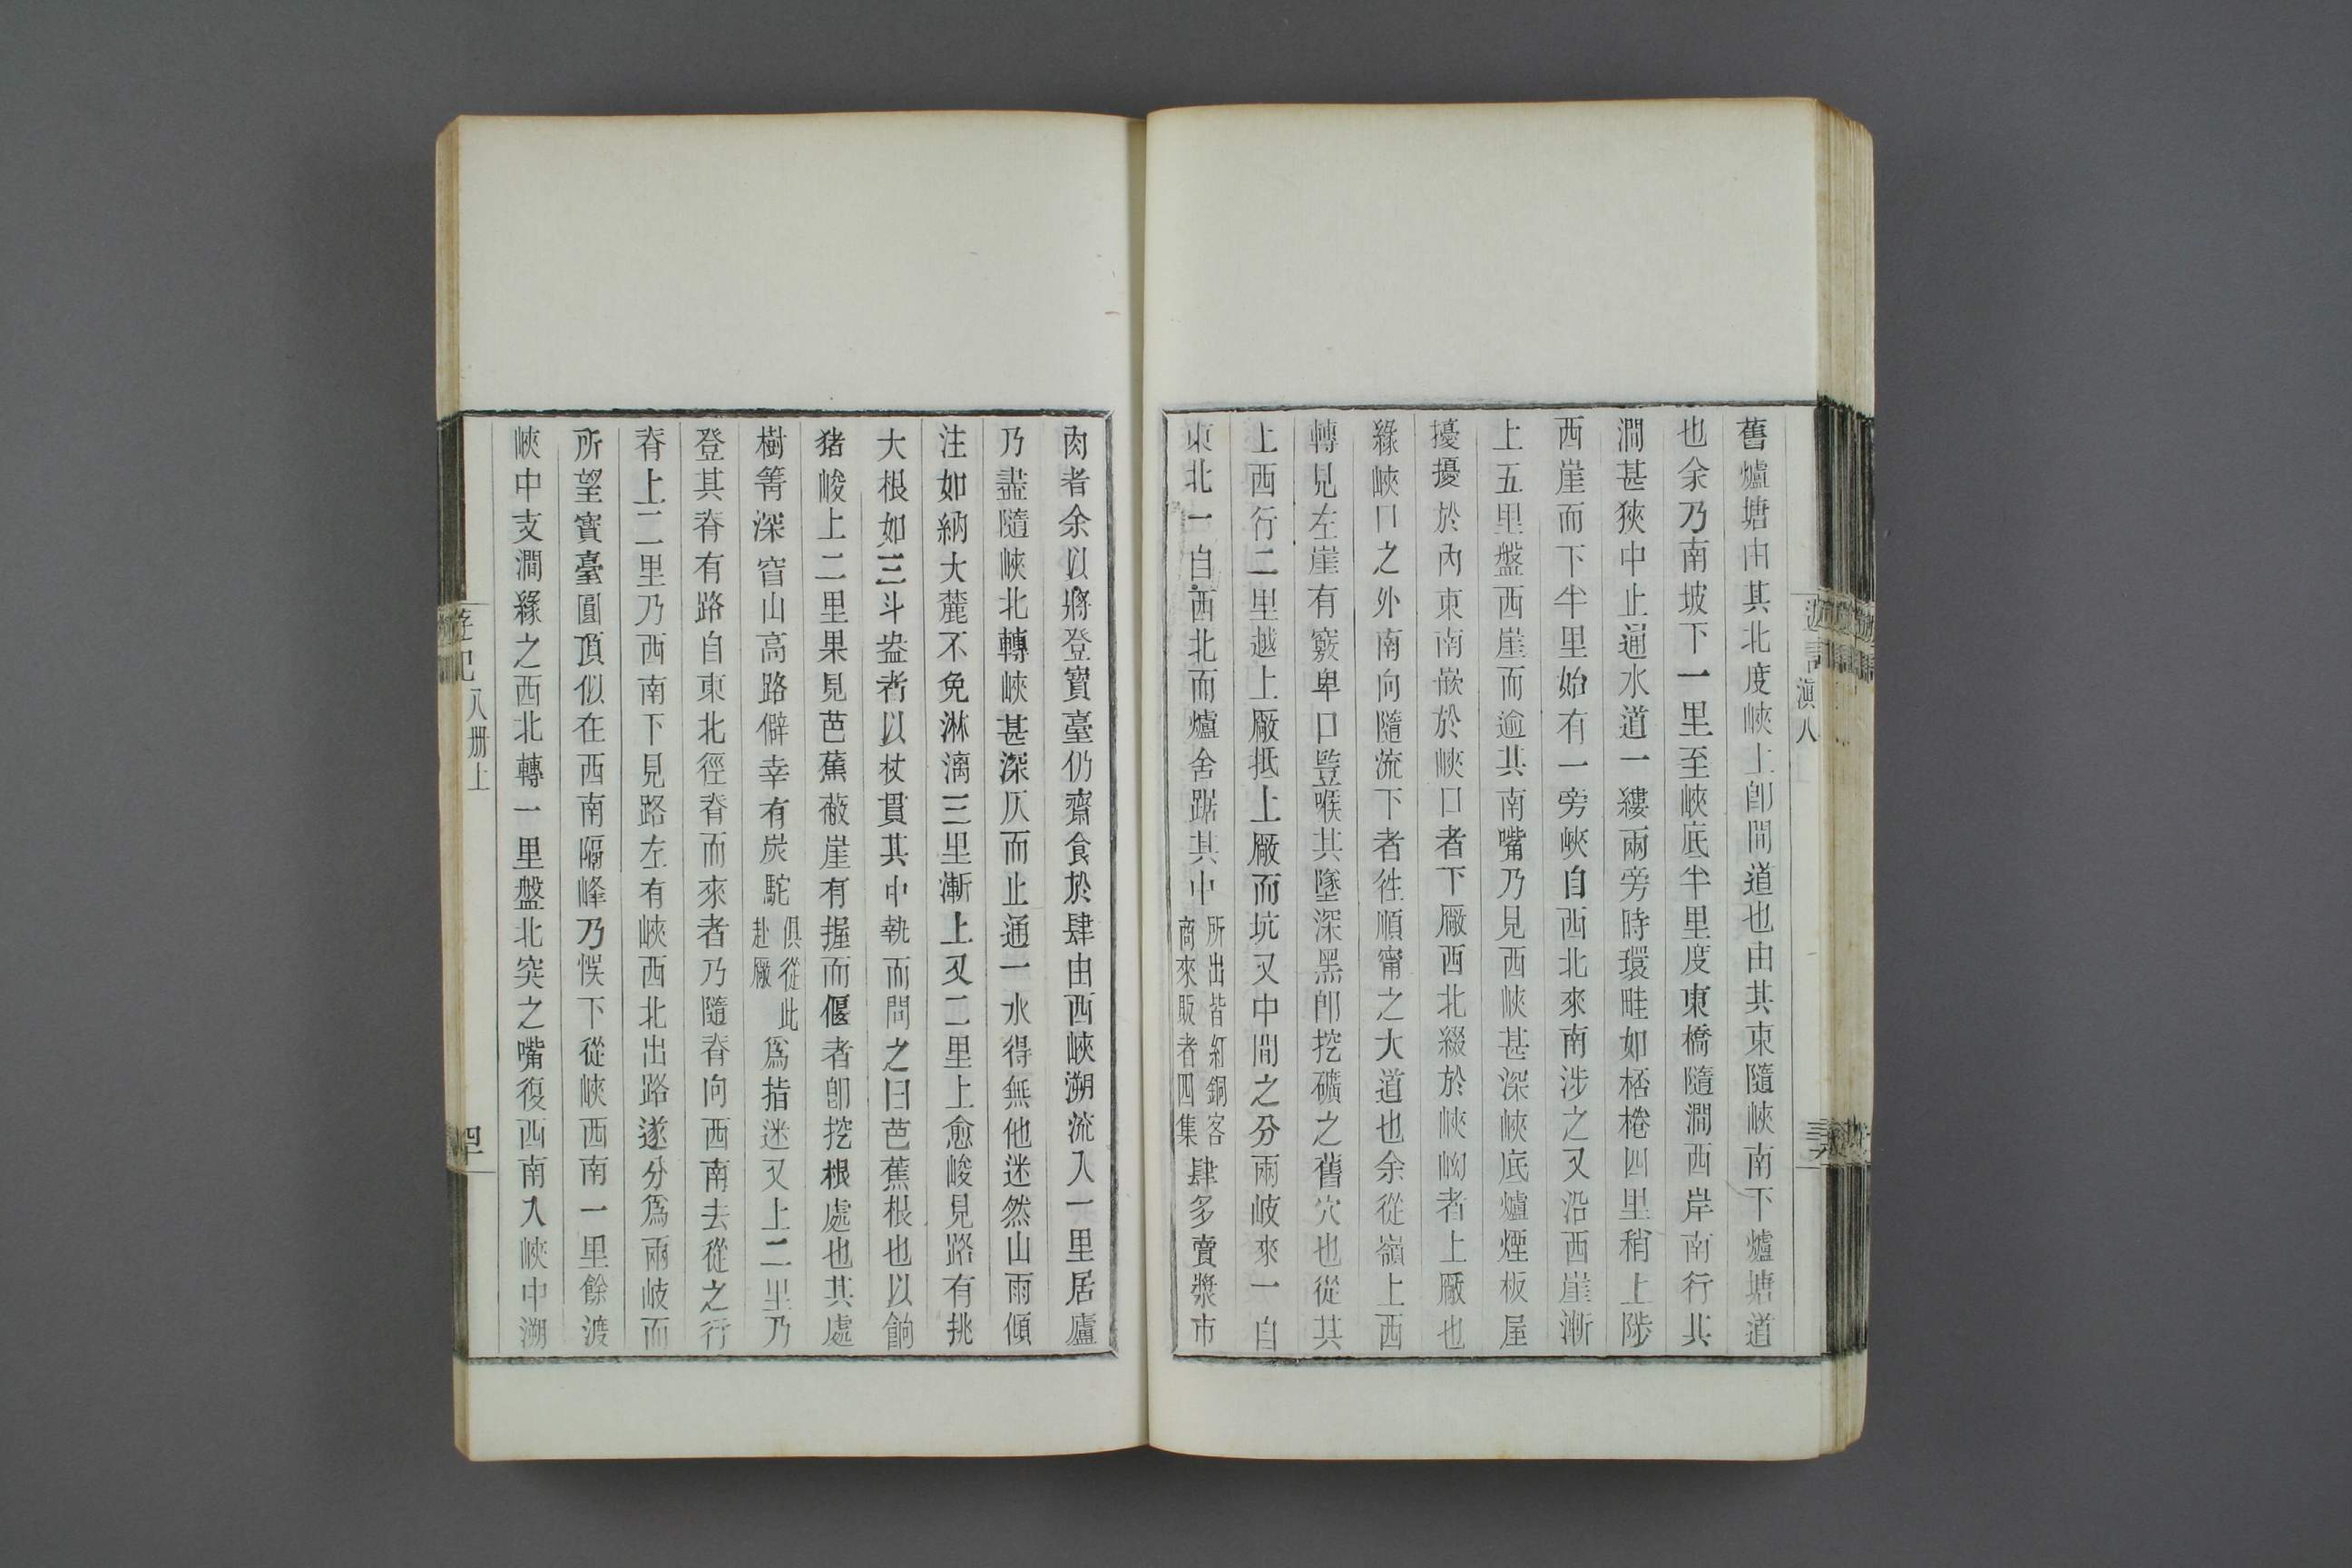 舊爐塘由其北度峽上卽間道也由其東隨峽南下爐塘道
也余乃南坡下一里至峽底半里度東橋隨澗西岸南行其
澗甚狹中止通水道一縷兩旁時環畦如桮棬四里稍上陟
西崖而下半里始有一旁峽自西北來南涉之又沿西崖漸
上五里盤西崖而逾其南嘴乃見西峽甚深峽底爐煙板屋
擾擾於內東南嵌於峽口者下厰西北綴於峽坳者上厰也
緣峽口之外南向隨流下者徃順甯之大道也余從嶺上西
轉見左崖有竅卑口豎喉其墜深黑卽挖礦之舊穴也從其
上西行二里越上厰抵上厰而坑又中間之分兩岐來一自
東北一自西北而爐舍踞其中所出皆紅銅客商來販者四集肆多賣漿市
肉者余以將登寶臺仍齋食於肆由西峽溯流入一里居廬
乃盡隨峽北轉峽甚深仄而止通一水得無他迷然山雨傾
注如納大麓不免淋漓三里漸上又二里上愈峻見路有挑
大根如三斗盎者以杖貫其中執而問之曰芭蕉根也以餉
猪峻上二里果見芭蕉蔽崖有握而偃者卽挖根處也其處
樹箐深窅山高路僻幸有炭駝俱從此赴厰爲指迷又上二里乃
登其脊有路自東北徑脊而來者乃隨脊向西南去從之行
脊上二里乃西南下見路左有峽西北出路遂分爲兩岐而
所望寶臺圓頂似在西南隔峰乃悞下從峽西南一里餘渡
峽中支澗緣之西北轉一里盤北突之嘴復西南入峽中溯
遊記 八册上 四
滇八